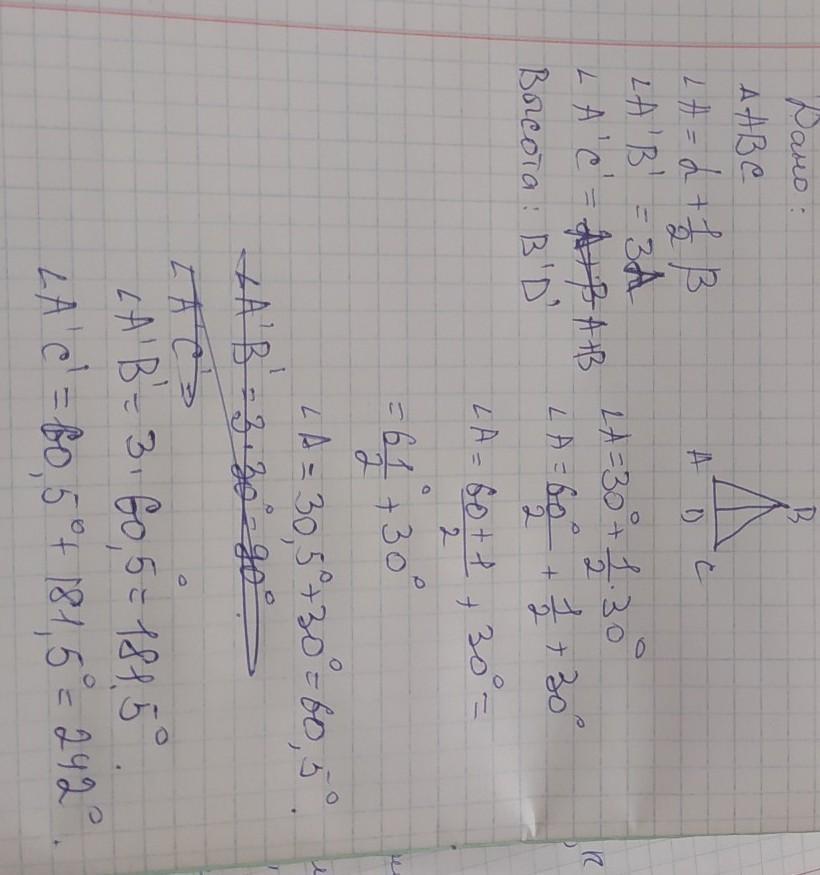 Дано:
△ABC
∠A = α + 1/2 β
∠A'B' = 3A
∠A'C' = A+B
Высота: B'D'
B
A D C
∠A = 30° + 1/2 · 30°
∠A = 60°/2 + 1/2 + 30°
∠A = 60+1/2 + 30° =
= 61°/2 + 30°
∠A = 30,5° + 30° = 60,5°.
∠A'B' = 3 · 30° = 90°.
∠A'C' =
∠A'B' = 3 · 60,5° = 181,5°.
∠A'C' = 60,5° + 181,5° = 242°.